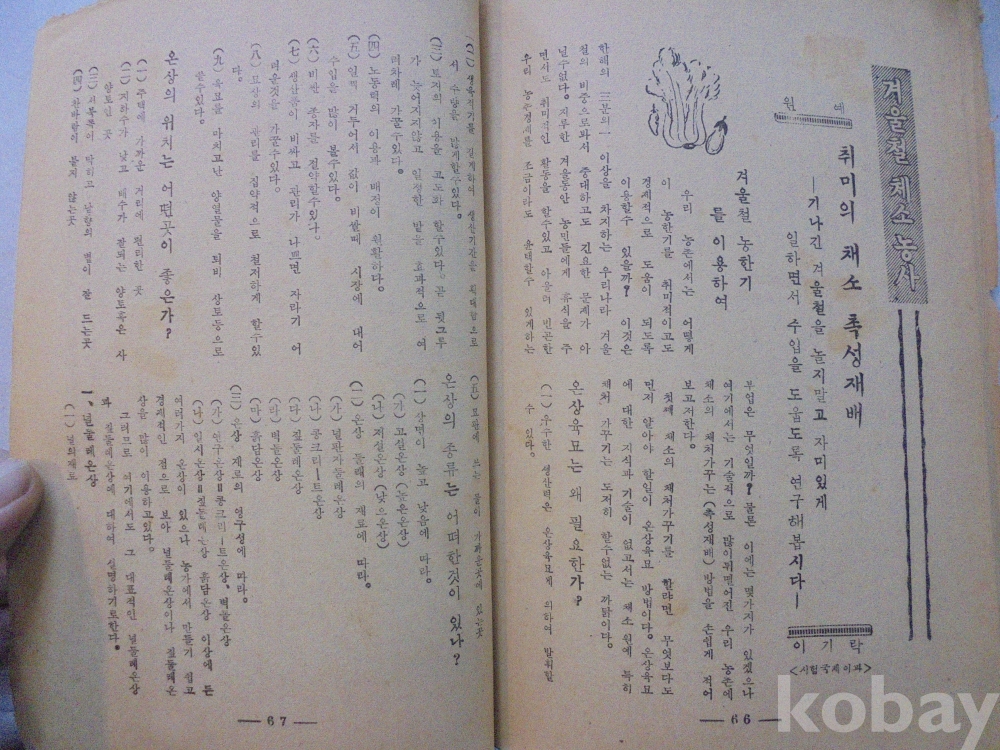 겨울철 채소농사
원예
취미의 채소 촉성재배
—기나긴 겨울철을 놀지말고 자미있게
일하면서 수입을 도웁도록 연구해봅시다—
이기락
겨울철 농한기
를 이용하여
우리 농촌에서는 어떻게
이 농한기를 취미적이고도
경제적으로 도움이 되도록
이용할수 있을까? 이것은
한해의 三분의一 이상을 차지하는 우리나라 겨울
철의 비중으로봐서 중대하고도 긴요한 문제가 아
닐수없다. 지루한 겨울동안 농민들에게 휴식을 주
면서도 취미적인 활동을 할수있고 아울러 빈곤한
우리 농촌경제를 조금이라도 윤택할수 있게하는
부업은 무엇일까? 물론 이에는 몇가지가 있겠으나
여기에서는 기술적으로 많이뒤떨어진 우리 농촌에
채소의 채처가꾸는(촉성재배) 방법을 손쉽게 적어
보고저한다.
첫째 채소의 채처가꾸기를 할랴면 무엇보다도
먼저 알아야 할일이 온상육묘 방법이다. 온상육묘
에 대한 지식과 기술이 없고서는 채소원예 특히
채처 가꾸기는 도저히 할수없는 까닭이다.
온상육묘는 왜 필요한가?
(一) 우수한 생산력은 온상육묘에 의하여 발휘할
수 있다.
—66—
(二) 생육적기를 길게하여 생산기간을 확대함으로
서 수량을 많게할수있다.
(三) 토지의 이용을 고도화 할수있다. 곧 뒷그루
가 늦어지지않고 일정한 밭을 효과적으로 여
러차례 가꿀수있다.
(四) 노동력의 이용과 배정이 원활하다.
(五) 일찍 거두어서 값이 비쌀때 시장에 내어
수입을 많이 볼수있다.
(六) 비싼 종자를 절약할수있다.
(七) 생산품이 비싸고 관리가 나쁘면 자라기 어
려운것을 가꿀수있다.
(八) 묘상의 관리를 집약적으로 철저하게 할수있
다.
(九) 육묘를 마치고난 양열물을 퇴비 상토등으로
쓸수있다.
온상의 위치는 어떤곳이 좋은가?
(一) 주택에 가까운 거리에 편리한 곳
(二) 지하수가 낮고 배수가 잘되는 양토혹은 사
양토인 곳
(三) 서북쪽이 막히고 남향의 볕이 잘 드는곳
(四) 찬바람이 통지 않는곳
(五) 묘판에 쓰는 물이 가까운곳에 있는곳
온상의 종류는 어떠한것이 있나?
(一) 상면이 높고 낮음에 따라.
(가) 고설온상(높은온상)
(나) 저설온상(낮으온상)
(二) 온상 둘레의 재료에 따라.
(가) 널판자둘레온상
(나) 콩크리—트온상
(다) 짚둘레온상
(라) 벽돌온상
(마) 흙담온상
(三) 온상 재료의 영구성에 따라.
(가) 영구온상=콩크리—트온상, 벽돌온상
(나) 일시온상=짚둘레온상 흙담온상 이상에 든
여러가지 온상이 있으나 농가에서 만들기 쉽고
경제적인 점으로 보아 널둘레온상이나 짚둘레온
상을 많이 이용하고있다.
그러므로 여기에서도 그 대표적인 널둘레온상
과 짚둘레온상에 대하여 설명하기로한다.
一, 널둘레온상
(一) 널의재료
—67—
kobay